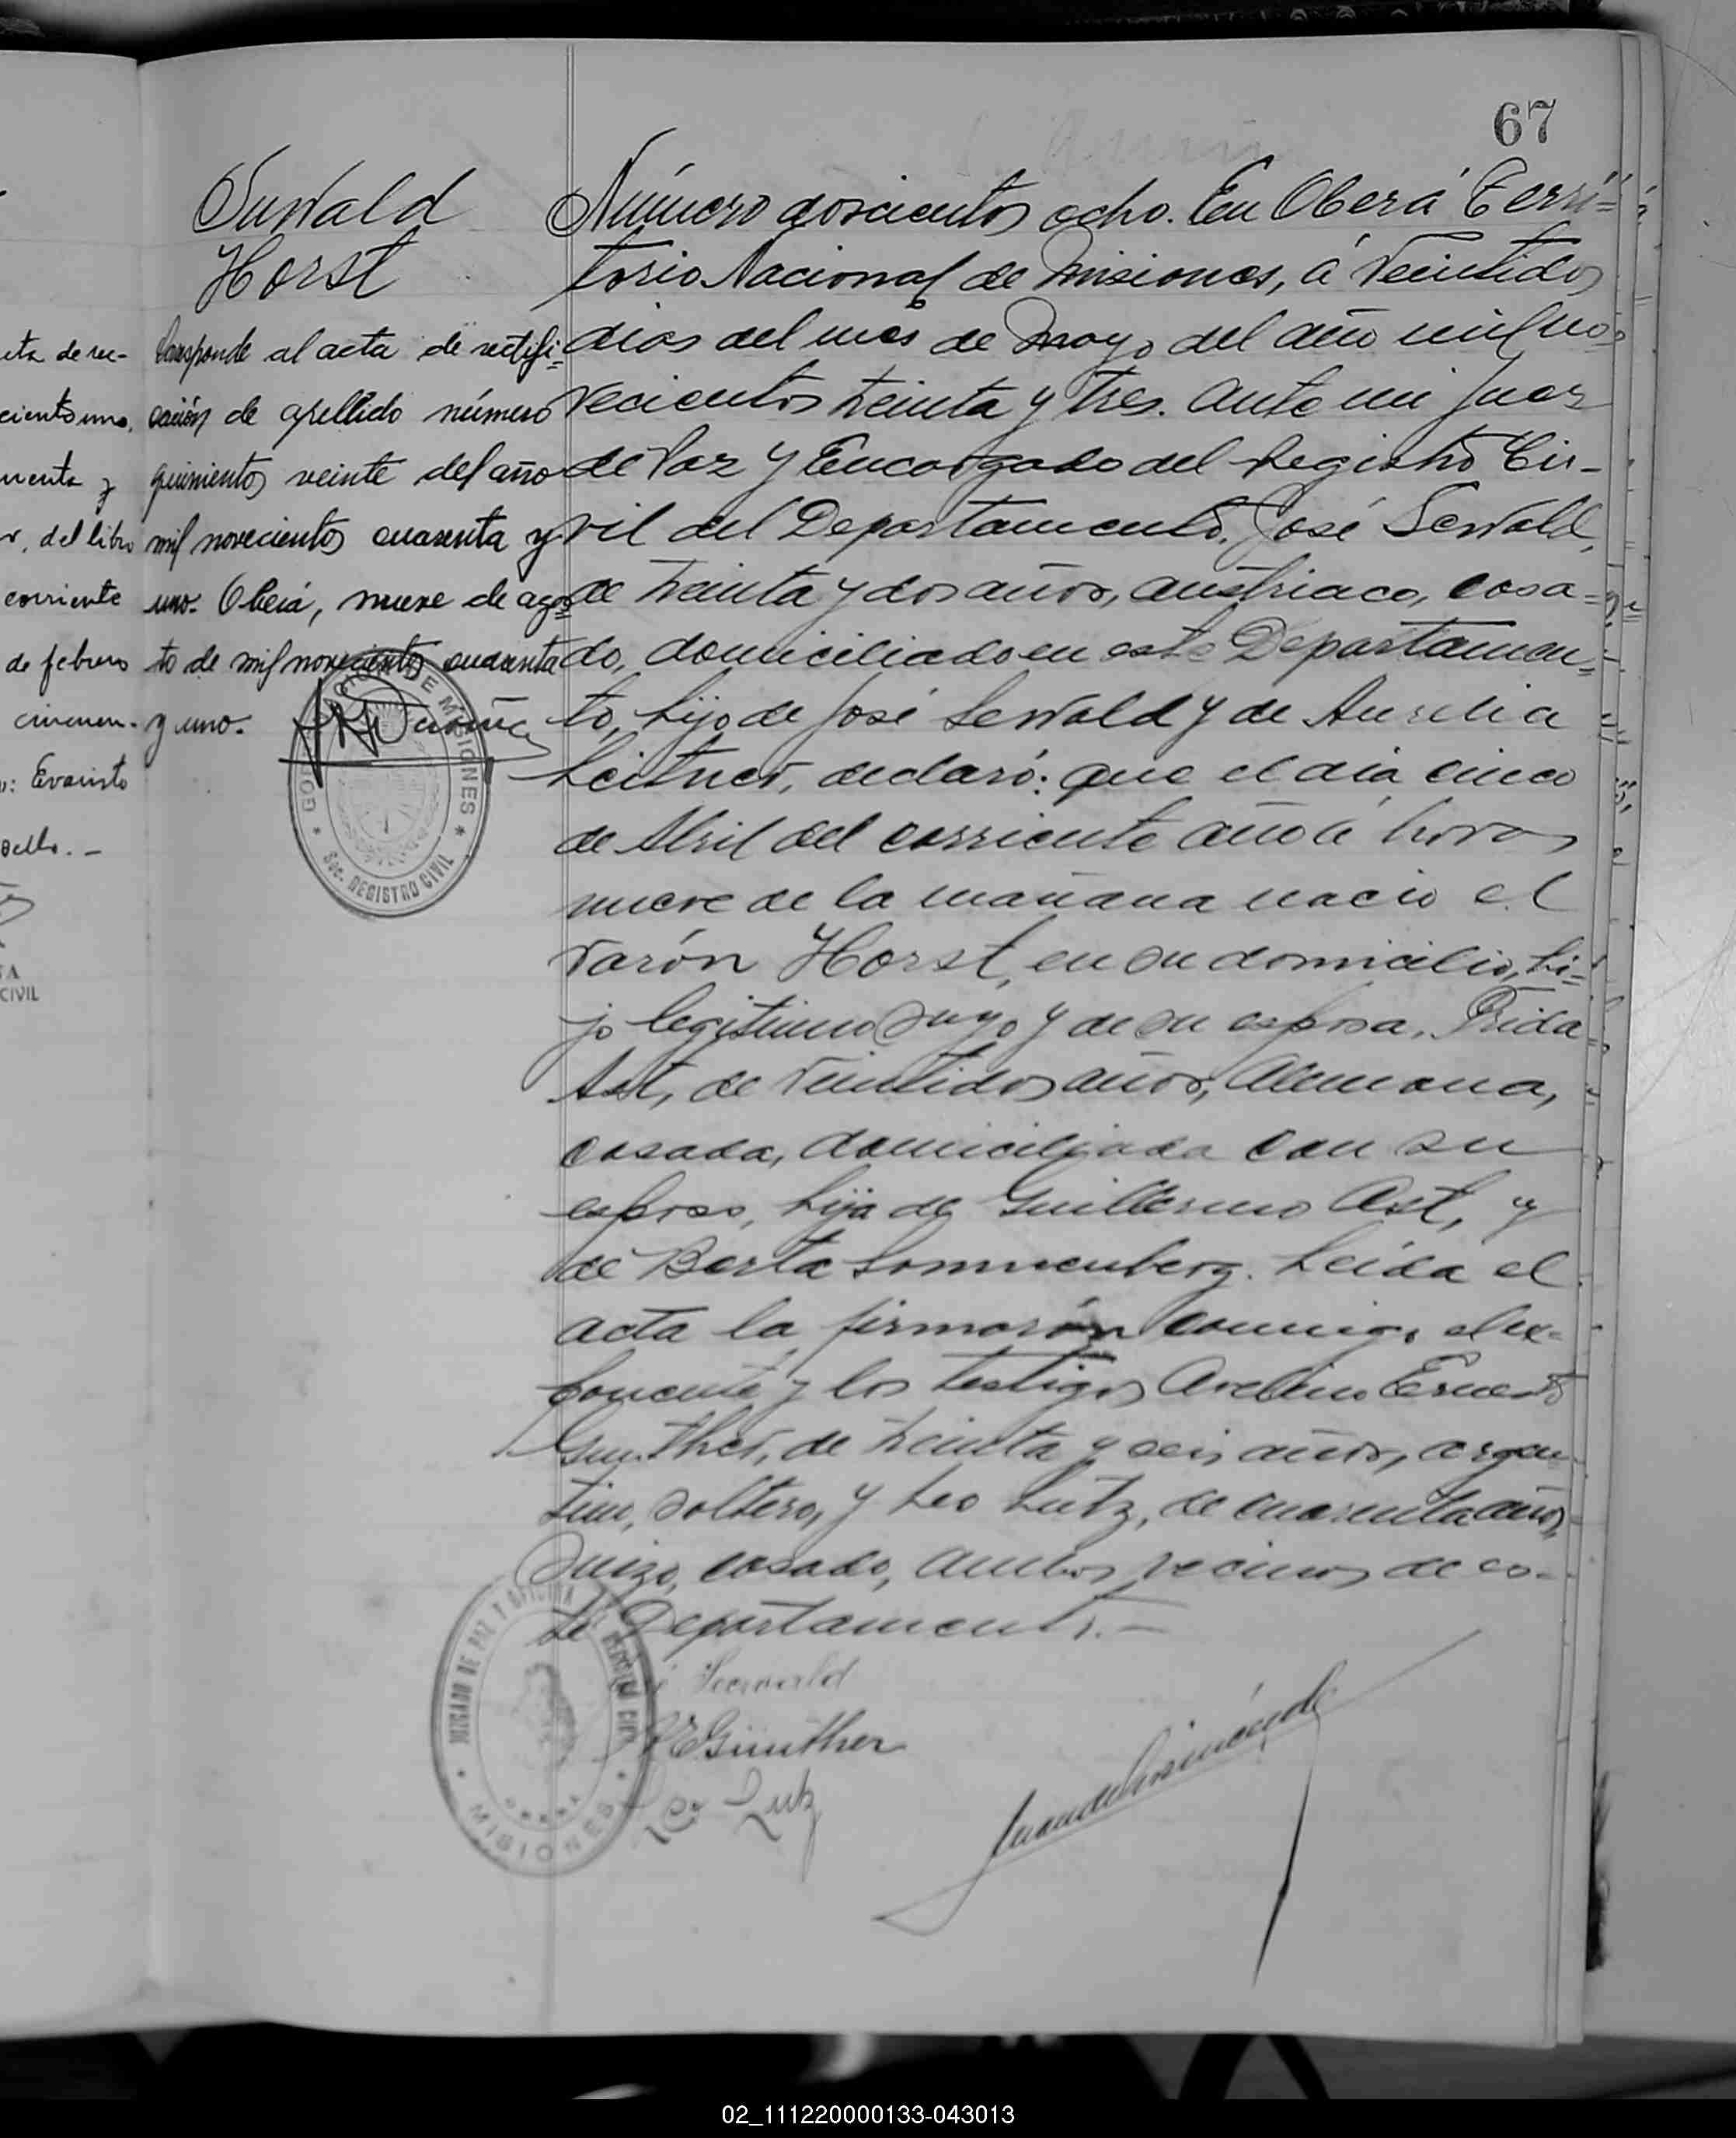 67
Suwald
Horst
Corresponde al acta de rectifi-
cación de apellido número
quinientos veinte del año
mil novecientos cuarenta y
uno. Oberá, nueve de agos-
to de mil novecientos cuarenta
y uno.
MISIONES
Sec. REGISTRO CIVIL
Número doscientos ocho. En Oberá Terri-
torio Nacional de Misiones, á veintidos
dias del mes de Mayo del año mil no-
vecientos treinta y tres. Ante mi Juez
de Paz y Encargado del Registro Ci-
vil del Departamento. José Sewald,
de treinta y dos años, austriaco, casa-
do, domiciliado en este Departamen-
to, hijo de José Sewald y de Aurelia
Leitner, declaró: que el dia cinco
de Abril del corriente año á horas
nueve de la mañana nacio el
varón Horst, en su domicilio, hi-
jo legitimo suyo y de su esposa, Frida
Ast, de veintidos años, Alemana,
casada, domiciliada con su
esposo, hija de Guillermo Ast, y
de Berta Sonnenberg. Leída el
acta la firmarón conmigo el ex-
ponente y los testigos Avelino Ernesto
Gunther, de treinta y seis años, argen-
tino, soltero, y Leo Lutz, de cuarenta años,
Suizo, casado, ambos vecinos de es-
te Departamento.-
Seewald
E Günther
Leo Lutz
JUZGADO DE PAZ Y OFICINA
MISIONES
eta de rec-
ciento uno.
nenta y
r. del libro
corriente
de febrero
cincuen-
: Evaristo
sello. -
CIVIL
02_111220000133-043013